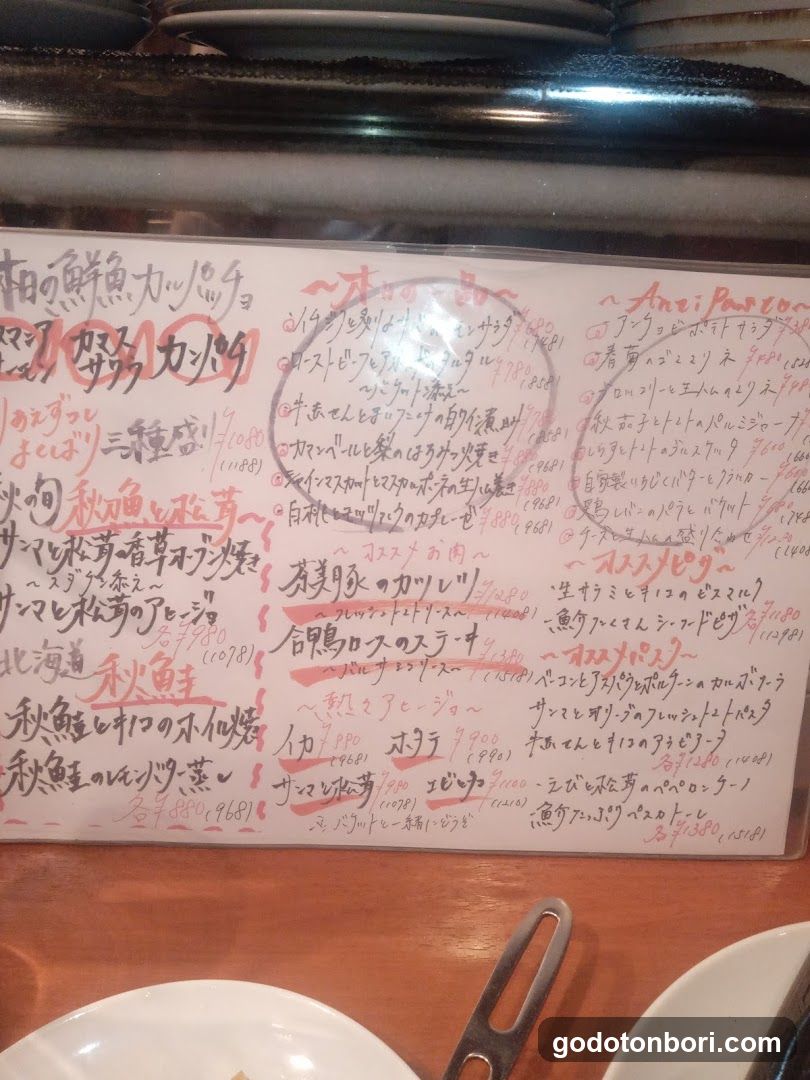 本日の鮮魚カルパッチョ
カマス
サワラ
カンパチ
とりあえずコレ
よくばり 三種盛り ¥1080
(1188)
秋の旬 秋刀魚と松茸
サンマと松茸の香草オーブン焼き
〜スダチ添え〜
サンマと松茸のアヒージョ
各¥980
(1078)
北海道 秋鮭
秋鮭とキノコのホイル焼
秋鮭のレモンバター蒸し
各¥880(968)
〜本日の一品〜
¥680
(748)
ローストビーフとアボカドのタルタル ¥780
〜バケット添え〜 (858)
(858)
カマンベールと梨のはちみつ焼き ¥880
(968)
シャインマスカットとマスカルポーネの生ハム巻き ¥880
(968)
白桃とモッツァレラのカプレーゼ ¥880
(968)
〜オススメお肉〜
茶美豚のカツレツ ¥1280
〜フレッシュトマトソース〜 (1408)
合鴨ロースのステーキ ¥1380
〜バルサミコソース〜 (1518)
〜熱々アヒージョ〜
イカ ¥880 (968) ホタテ ¥900 (990)
サンマと松茸 ¥980 (1078) エビとタコ ¥1100 (1210)
バケットと一緒にどうぞ
アンチョビポテトサラダ
春菊のゴママリネ ¥480
ブロッコリーと生ハムのマリネ
秋茄子とトマトのパルミジャーナ
しらすとトマトのブルスケッタ ¥600
自家製いちじくバターとクラッカー
鶏レバーのパテとバケット
チーズと生ハムの盛り合わせ ¥1200
〜オススメピザ〜
・生サラミとキノコのビスマルク
・魚介たくさんシーフードピザ 各¥1180
(1298)
〜オススメパスタ〜
・ベーコンとアスパラとポルチーニのカルボナーラ
サンマとオリーブのフレッシュトマトパスタ
牛赤せんとキノコのアラビアータ
各¥1280 (1408)
・えびと松茸のペペロンチーノ
・魚介たっぷりペスカトーレ
各¥1380
(1518)
godotonbori.com